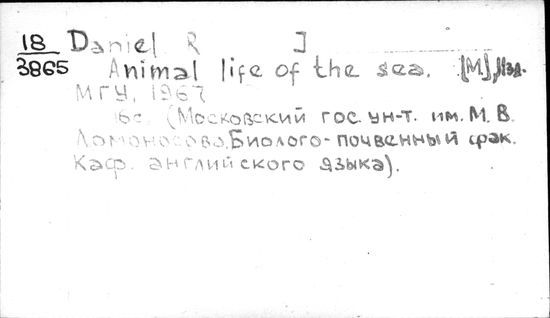 18 Daniel R ]
3865 Animal life of the sea. [М], Изд.
МГУ, 1967
16с. (Московский гос. ун-т. им. М. В.
Ломоносова. Биолого-почвенный фак.
Каф. английского языка).